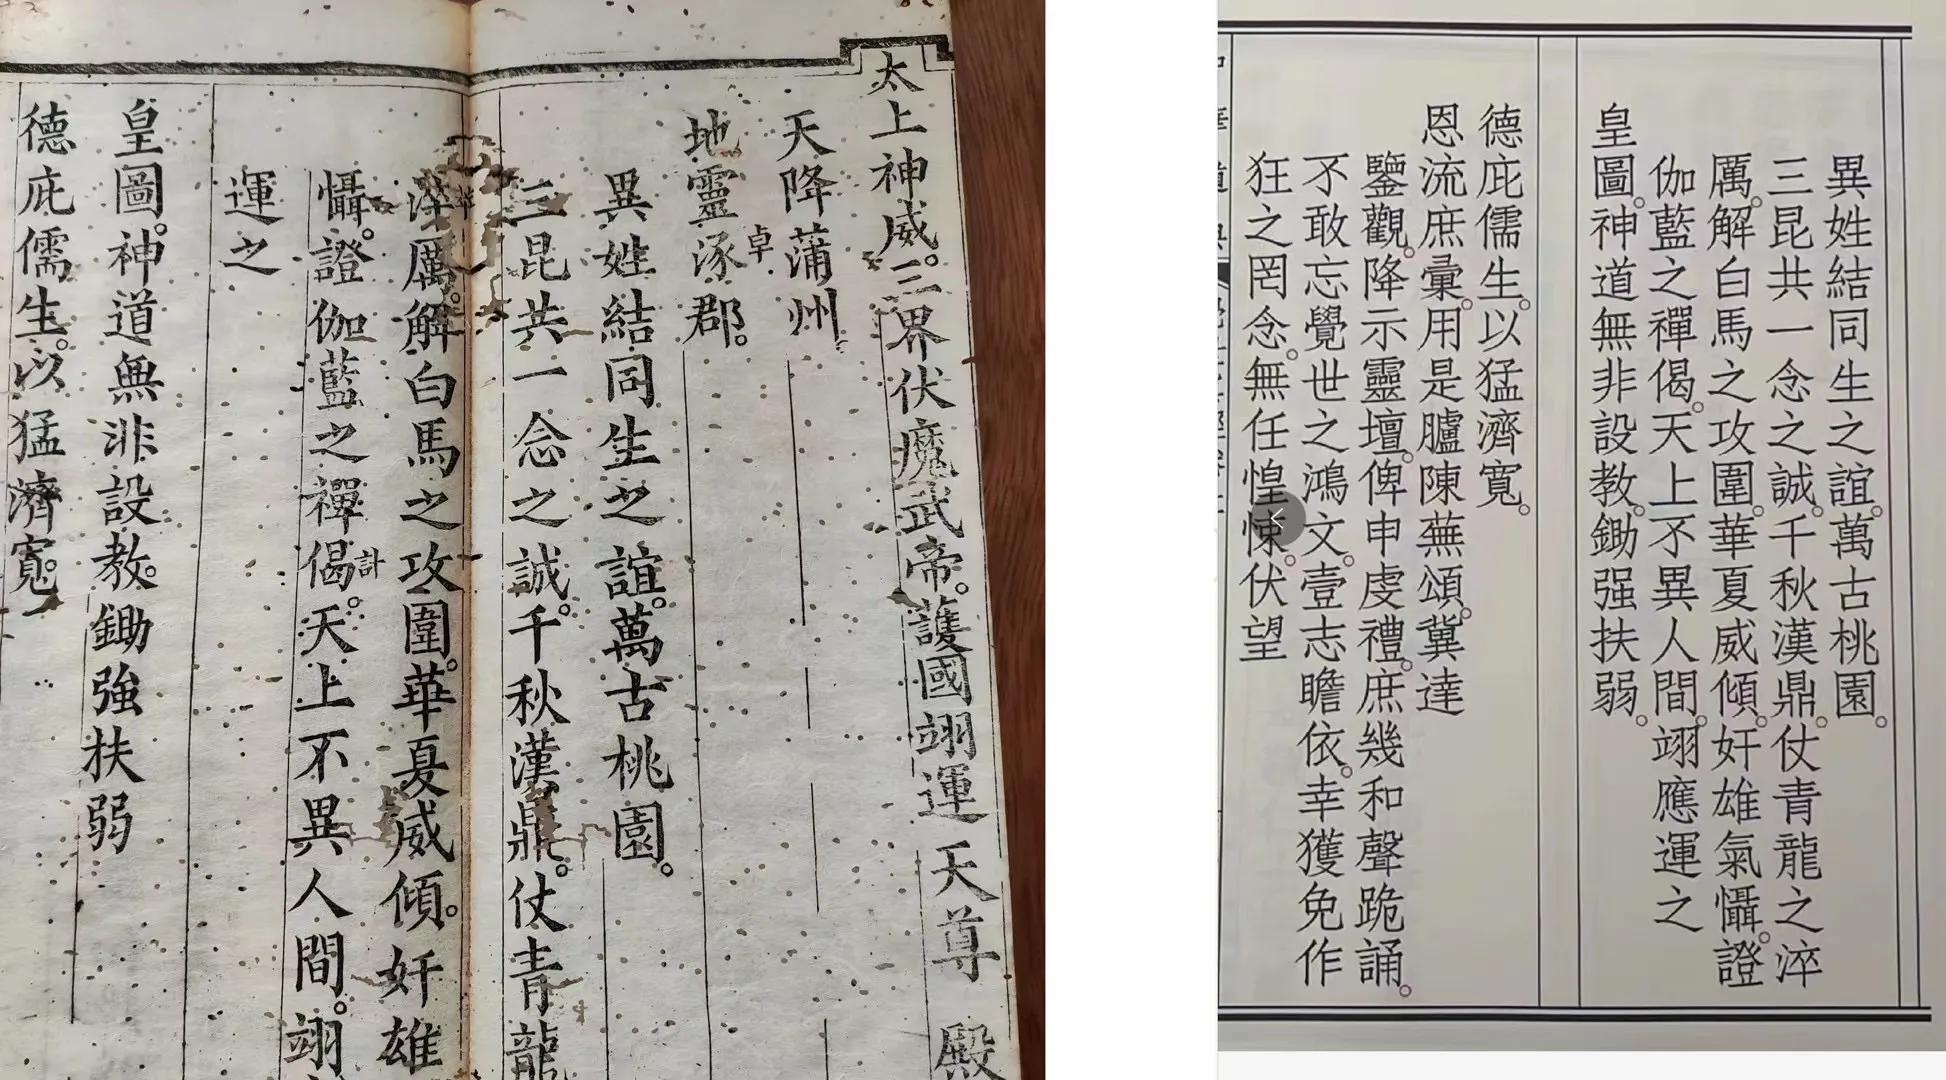 太上神威。三界伏魔武帝。護國翊運天尊 殿
天降蒲州
地靈涿郡。
卓
異姓結同生之誼。萬古桃園。
三昆共一念之誠。千秋漢鼎。仗青龍
淬厲。解白馬之攻圍。華夏威傾。奸雄
懾。證伽藍之禪偈。天上不異人間。翊
計
運之
皇圖。神道無非設教。鋤強扶弱
德庇儒生。以猛濟寬。
異姓結同生之誼。萬古桃園。
三昆共一念之誠。千秋漢鼎。仗青龍之淬
厲。解白馬之攻圍。華夏威傾。奸雄氣懾。證
伽藍之禪偈。天上不異人間。翊應運之
皇圖。神道無非設教。鋤强扶弱。
德庇儒生。以猛濟寬。
恩流庶彙。用是臚陳蕪頌。冀達
鑒觀。降示靈壇。俾申虔禮。庶幾和聲跪誦。
不敢忘覺世之鴻文。壹志瞻依。幸獲免作
狂之罔念。無任惶悚。伏望